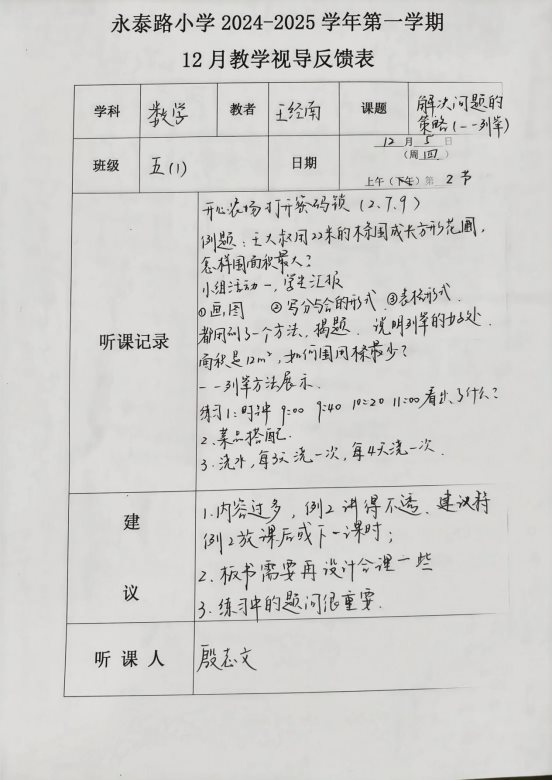 永泰路小学 2024-2025 学年第一学期
12 月教学视导反馈表
学科 数学 教者 王经南 课题 解决问题的
策略(一一列举)
班级 五(1) 日期 12 月 5 日
(周四)
上午(下午)第 2 节
听课记录
开心农场 打开密码锁 (2、7、9)
例题:王大叔用22米的木条围成长方形花圃,
怎样围面积最大?
小组活动一,学生汇报
①画图 ②写分与合的形式 ③表格形式.
都用到了一个方法, 揭题. 说明列举的好处.
面积是12m²,如何围用木条最少?
一一列举方法展示.
练习1:时钟 9:00 9:40 10:20 11:00 看出了什么?
2、菜品搭配.
3、浇水,每3天浇一次,每4天浇一次.
建议
1.内容过多,例2讲得不透、建议将
例2放课后或下一课时;
2、板书需要再设计合理一些
3、练习中的题问很重要.
听课人 殷志文